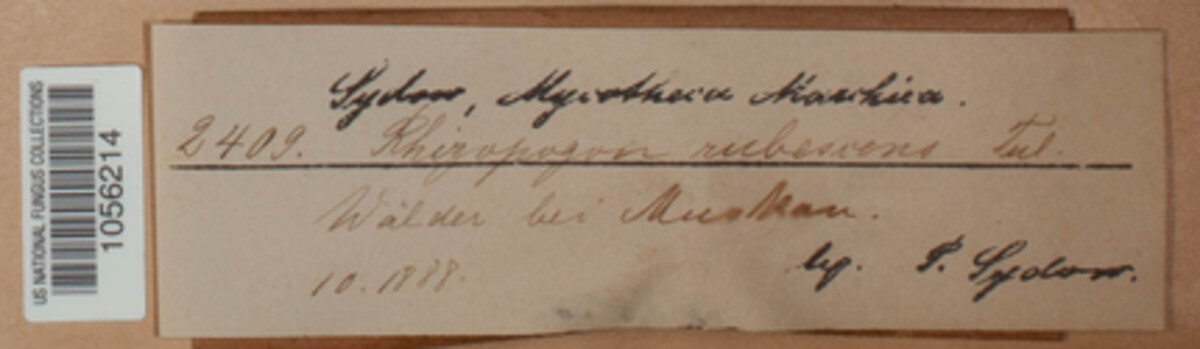 US NATIONAL FUNGUS COLLECTIONS
1056214
Sydow, Mycotheca Marchica.
2409. Rhizopogon rubescens Tul.
Wälder bei Muskau.
10.1888.
leg. P. Sydow.